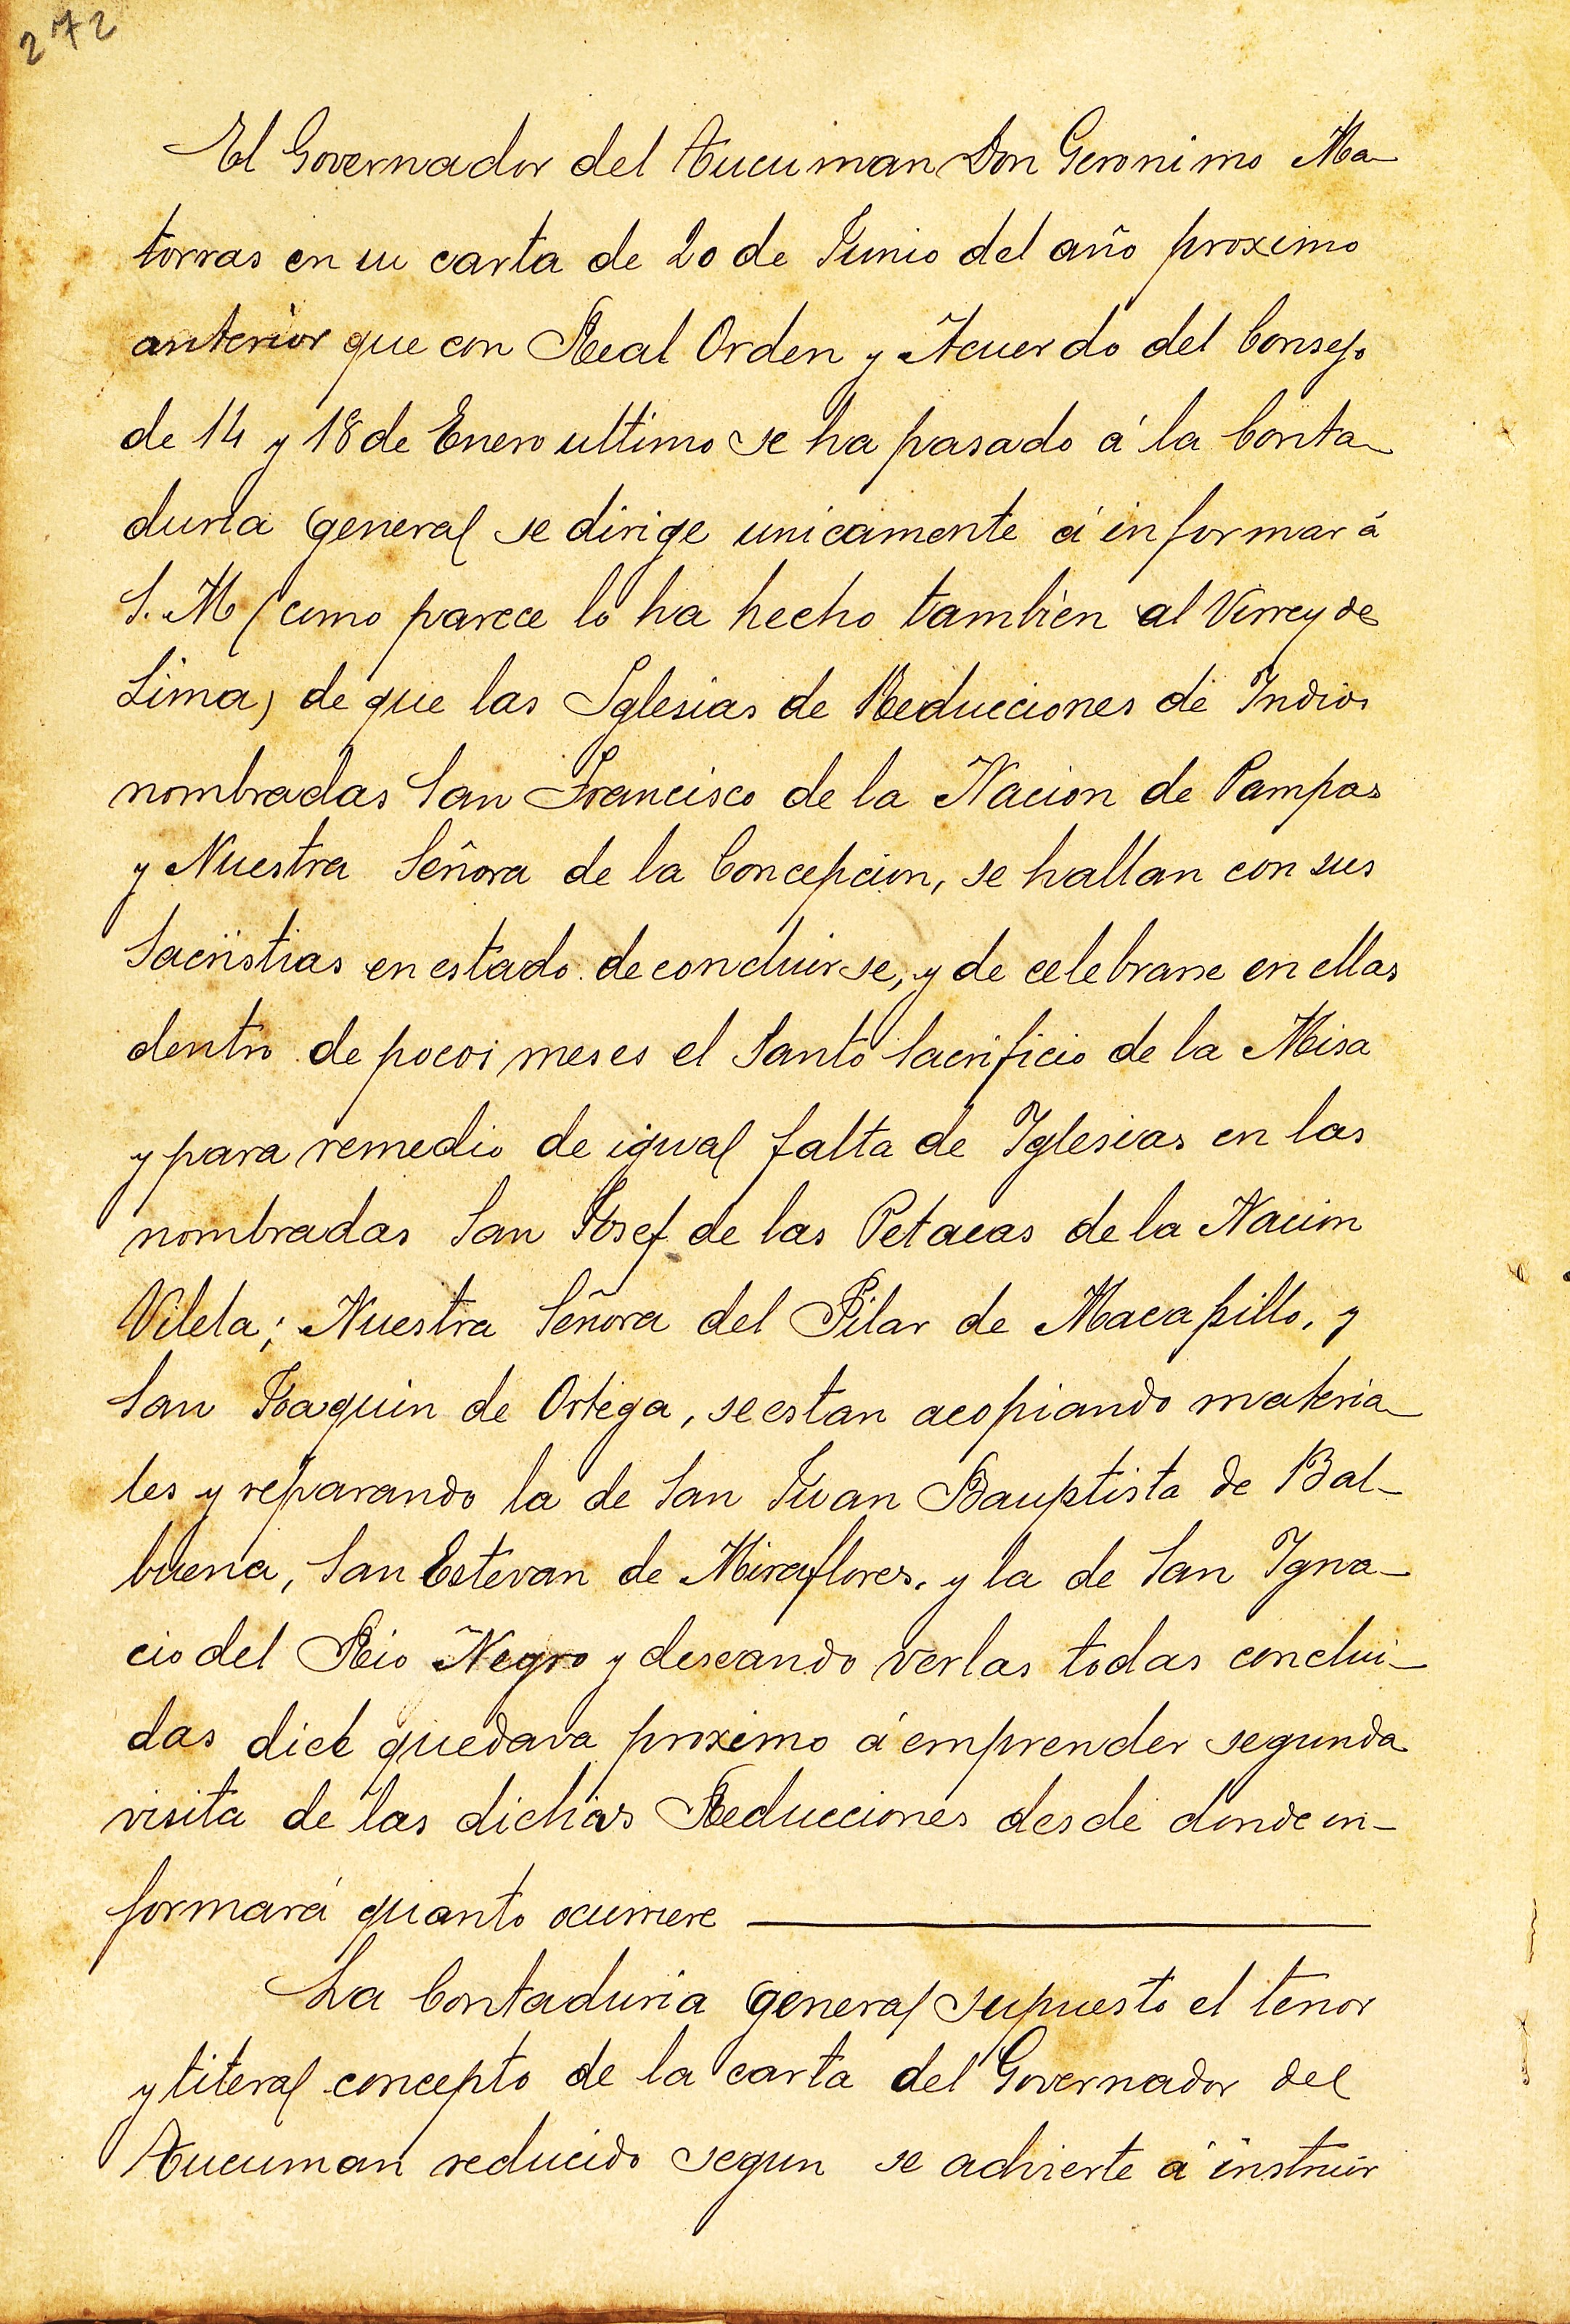 272
El Governador del Tucuman Don Geronimo Ma-
torras en su carta de 20 de Junio del año proximo
anterior que con Real Orden y Acuerdo del Consejo
de 14 y 18 de Enero ultimo se ha pasado á la Conta-
duria general se dirige unicamente á informar á
S. M (como parece lo ha hecho tambien al Virrey de
Lima) de que las Iglesias de Reducciones de Indios
nombradas San Francisco de la Nacion de Pampas
y Nuestra Señora de la Concepcion, se hallan con sus
Sacristias en estado de concluirse, y de celebrarse en ellas
dentro de pocos meses el Santo Sacrificio de la Misa
y para remedio de igual falta de Iglesias en las
nombradas San Josef de las Petacas de la Nacion
Vilela; Nuestra Señora del Pilar de Macapillo, y
San Joaquin de Ortega, se estan acopiando materia-
les y reparando la de San Juan Bauptista de Bal-
buena, San Estevan de Miraflores, y la de San Igna-
cio del Rio Negro y deseando verlas todas conclui-
das dice quedava proximo á emprender segunda
visita de las dichas Reducciones desde donde in-
formará quanto ocurriere
La Contaduria general supuesto el tenor
y literal concepto de la carta del Governador del
Tucuman reducido segun se advierte á instruir